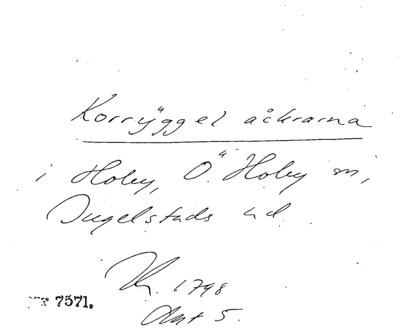 Korryggel åkrarna
i Hoby, Ö. Hoby sn,
Ingelstads hd
1798
Akt 5.
7571.